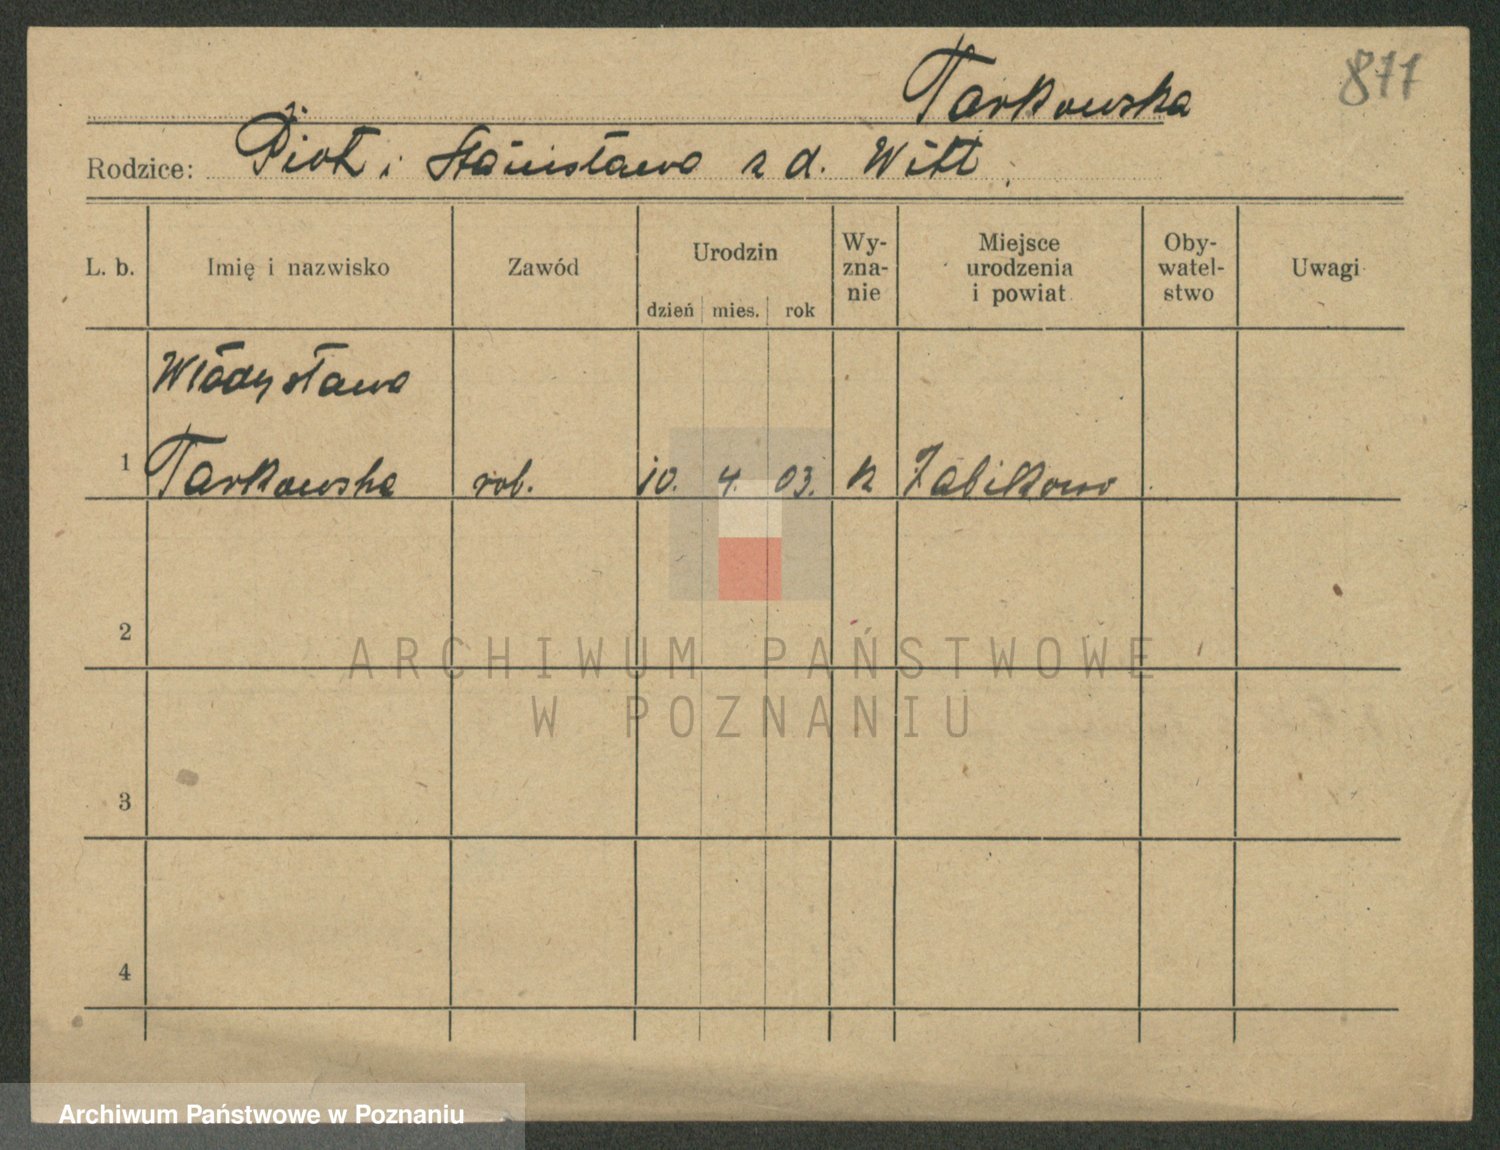 Tarkowska 877
Rodzice: Piotr i Stanisława z d. Witt
L. b. Imię i nazwisko Zawód Urodzin dzień mies. rok Wy- zna- nie Miejsce urodzenia i powiat Oby- watel- stwo Uwagi
Władysława
1 Tarkowska rob. 10. 4. 03. k Żabikowo
2
ARCHIWUM PAŃSTWOWE
W POZNANIU
3
4
Archiwum Państwowe w Poznaniu